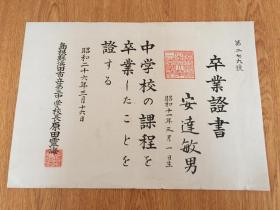 第二七六號
卒業證書
安達敏男
昭和十一年三月一日生
中学校の課程を
卒業したことを
證する
昭和二十六年三月十六日
島根縣浜田市立第一中学校長原田